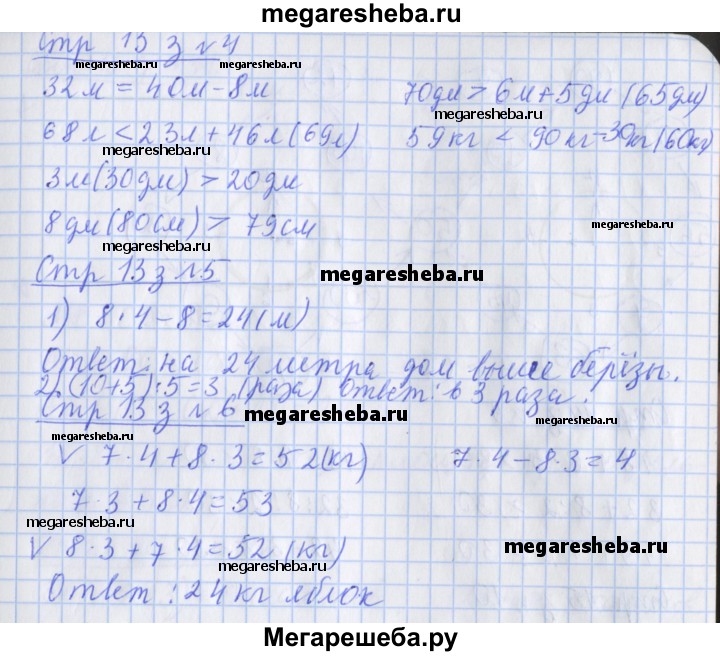 megaresheba.ru
Стр 13 з № 4
megaresheba.ru megaresheba.ru
32м = 40м - 8м 70дм > 6м + 5дм (65дм)
megaresheba.ru
68л < 23л + 46л (69л) 59кг < 90кг - 30кг (60кг)
megaresheba.ru
3м (30дм) > 20дм
8дм (80см) > 79см
megaresheba.ru
megaresheba.ru
Стр 13 з № 5
megaresheba.ru
1) 8 · 4 - 8 = 24 (м)
megaresheba.ru
Ответ: на 24 метра дом выше берёзы.
2) (10+5) : 5 = 3 (раза) Ответ: в 3 раза.
Стр 13 з № 6
megaresheba.ru megaresheba.ru
V 7 · 4 + 8 · 3 = 52 (кг) 7 · 4 - 8 · 3 = 4
7 · 3 + 8 · 4 = 53
megaresheba.ru
V 8 · 3 + 7 · 4 = 52 (кг)
megaresheba.ru
megaresheba.ru
Ответ: 24 кг яблок
megaresheba.ru
Мегарешеба.ру